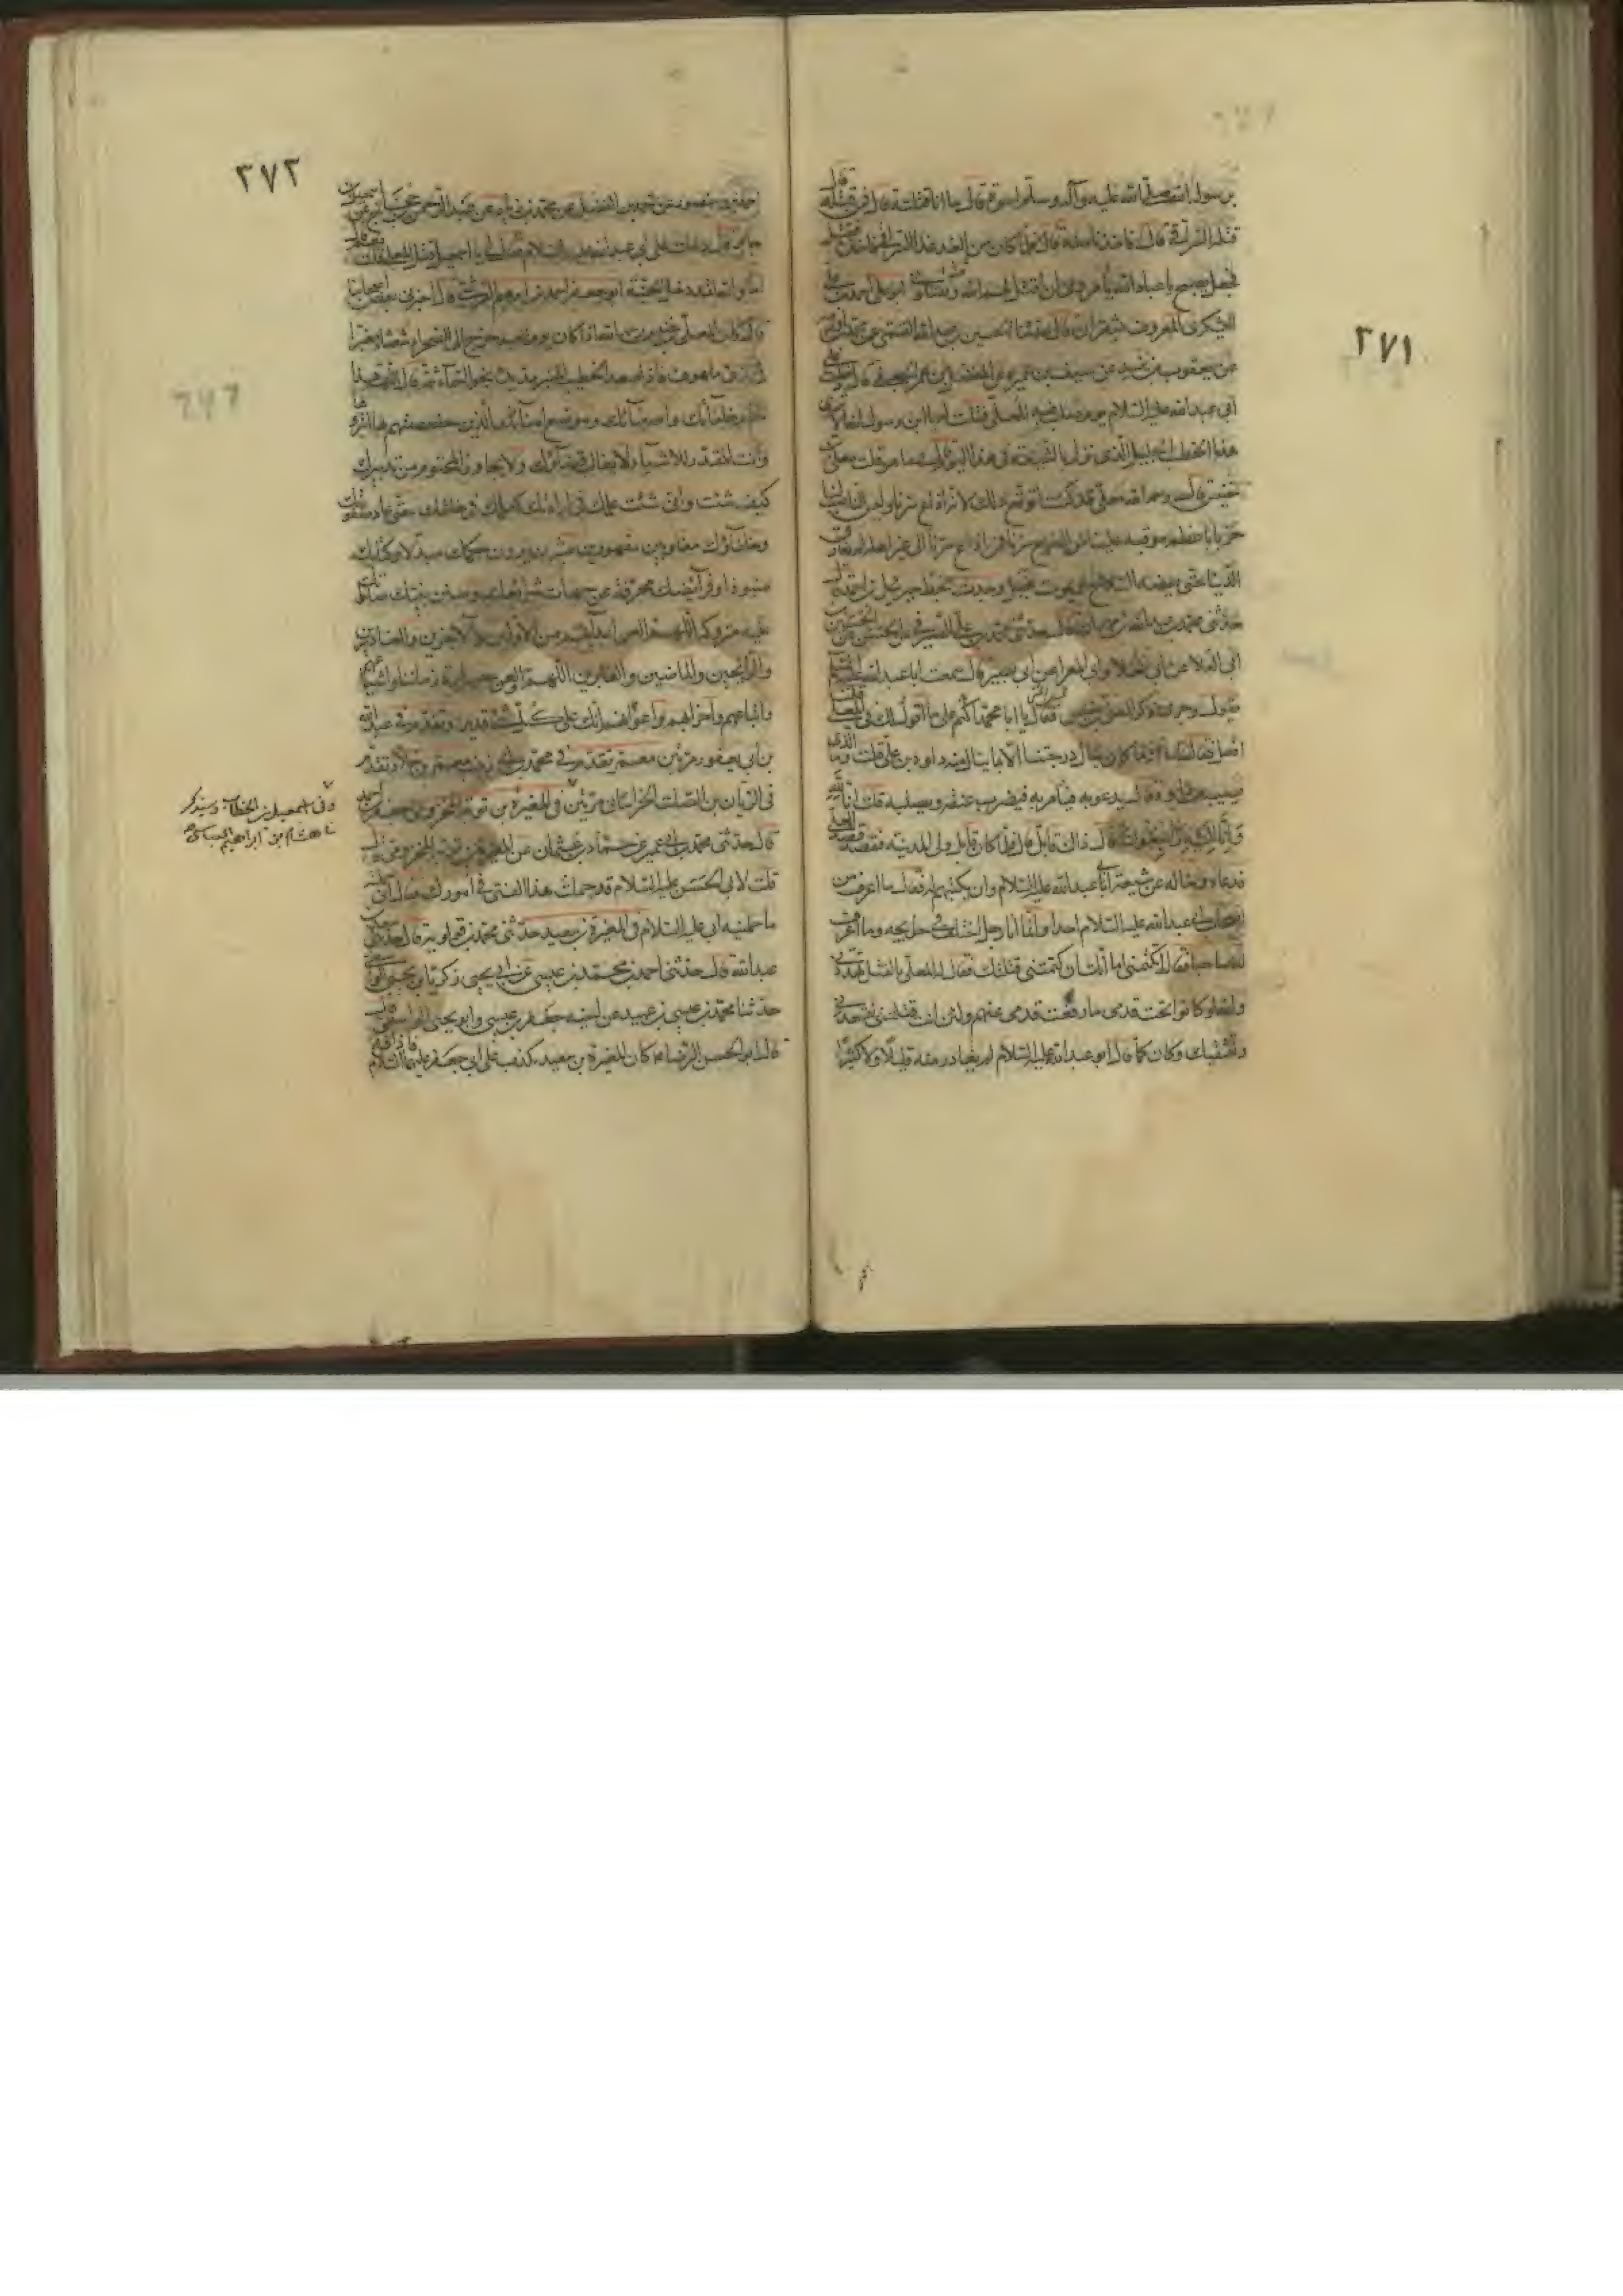 ٣٧١
برسول الله صلى الله عليه وآله وسلم اسوة قال ما انا قتلته قال فمن قتله قال
قتله السيرافي قال اقدنا منه قال فلما كان من الغد غدا السيرافي فاخذه فقتله
فجعل يصيح يا عباد الله يأمروني ان اقتل لهم الناس ثم يقتلوني ابو على احمد بن على
السكرى المعروف بشقران قال حدثنا الحسين بن عبيد الله القمي عن محمد بن اورمة
عن يعقوب بن يزيد عن سيف بن عميرة عن المفضل بن عمر الجعفي قال دخلت على
ابي عبد الله عليه السلام يوم صلب فيه المعلى فقلت له يا ابن رسول الله الا ترى
هذا الخطب الجليل الذي نزل بالشيعة في هذا اليوم قال وما هو قلت معلى بن
خنيس قال رحم الله معلى قد كنت اتوقع ذلك لانه اذاع سرنا وليس الناصب لنا
حربا باعظم مؤنة علينا من المذيع سرنا فمن اذاع سرنا الى غير اهله لم يفارق
الدنيا حتى يعضه السلاح او يموت بخبل وجدت بخط جبرئيل بن احمد قال
حدثني محمد بن عبد الله بن مهران قال حدثني محمد بن علي الصيرفي عن الحسن عن الحسين بن
ابي العلا عن ابي العلا وابي المغرا عن ابي بصير قال سمعت ابا عبد الله عليه السلام
يقول وجرى ذكر المعلى بن خنيس فقال يا ابا محمد اكتم على ما اقول لك في المعلى
افعل فقال اما انه ما كان ينال درجتنا الا بما ينال منه داود بن علي قلت وما الذي
يصيبه من داود قال يدعو به فيأمر به فيضرب عنقه ويصلبه قلت انا لله
وانا اليه راجعون قال ذاك قابل قال فلما كان قابل ولى المدينة فقصد قصد المعلى
فدعاه وساله عن شيعة ابي عبد الله عليه السلام وان يكتبهم له فقال ما اعرف من
اصحاب ابي عبد الله عليه السلام احدا وانما انا رجل اختلف في حوائجه وما اعرف
له صاحبا فقال اتكتمني اما انك ان كتمتني قتلتك فقال له المعلى بالقتل تهددني
والله لو كانوا تحت قدمي ما رفعت قدمي عنهم ولئن انت قتلتني لتسعدني
واشقيك وكان كما قال ابو عبد الله عليه السلام لم يغادر منه قليلا ولا كثيرا
٣٧٢
احمد بن منصور عن احمد بن الفضل عن محمد بن زياد عن عبد الرحمن بن الحجاج عن اسمعيل بن
جابر قال دخلت على ابي عبد الله عليه السلام فقال لي يا اسمعيل قتل المعلى قلت نعم قال
اما والله لقد دخل الجنة ابو جعفر احمد بن ابراهيم القرشي قال اخبرني بعض اصحابنا
قال كان المعلى بن خنيس رحمه الله اذا كان يوم العيد خرج الى الصحراء شعثا مغبرا
في زي ملهوف فاذا صعد الخطيب المنبر مد يديه نحو السماء ثم قال اللهم هذا
مقام خلفائك واصفيائك وموضع امنائك الذين خصصتهم بها ابتزوها
وانت المقدر للاشياء لا يغالب قضاؤك ولا يجاوز المحتوم من تدبيرك
كيف شئت وانى شئت علمك في ارادتك كعلمك في خلقك حتى عاد صفوتك
وخلفاؤك مغلوبين مقهورين مبتزين يرون حكمك مبدلا وكتابك
منبوذا وفرائضك محرفة عن جهات شرائعك وسنن نبيك صلواتك
عليه متروكة اللهم العن اعدائهم من الاولين والآخرين والغادين
والرائحين والماضين والغابرين اللهم والعن جبابرة زماننا واشياعهم
واتباعهم واحزابهم واعوانهم انك على كل شئ قدير وتقدم في عبد الله
بن ابي يعفور مرتين معمر تقدم في محمد بن
في الريان بن الصلت الخراساني مرتين في المغيرة بن توبة المخزومي جعفر بن احمد
قال حدثني محمد بن ابي عمير عن حماد بن عثمان عن المغيرة بن توبة المخزومي قال
قلت لابي الحسن عليه السلام قد حملت هذا الفتى في امورك فقال اني حملته
ما حملنيه ابي عليه السلام في المغيرة بن سعيد حدثني محمد بن قولويه قال حدثني سعد بن
عبد الله قال حدثني احمد بن محمد بن عيسى عن ابي يحيى زكريا بن يحيى الواسطي
حدثنا محمد بن عيسى بن عبيد عن اخيه جعفر بن عيسى وابو يحيى الواسطي قال
قال ابو الحسن الرضا ع كان المغيرة بن سعيد يكذب على ابي جعفر عليهما السلام فاذاقه
وفى اسمعيل بن الخطاب وسيذكر
في هشام بن ابراهيم العباسي